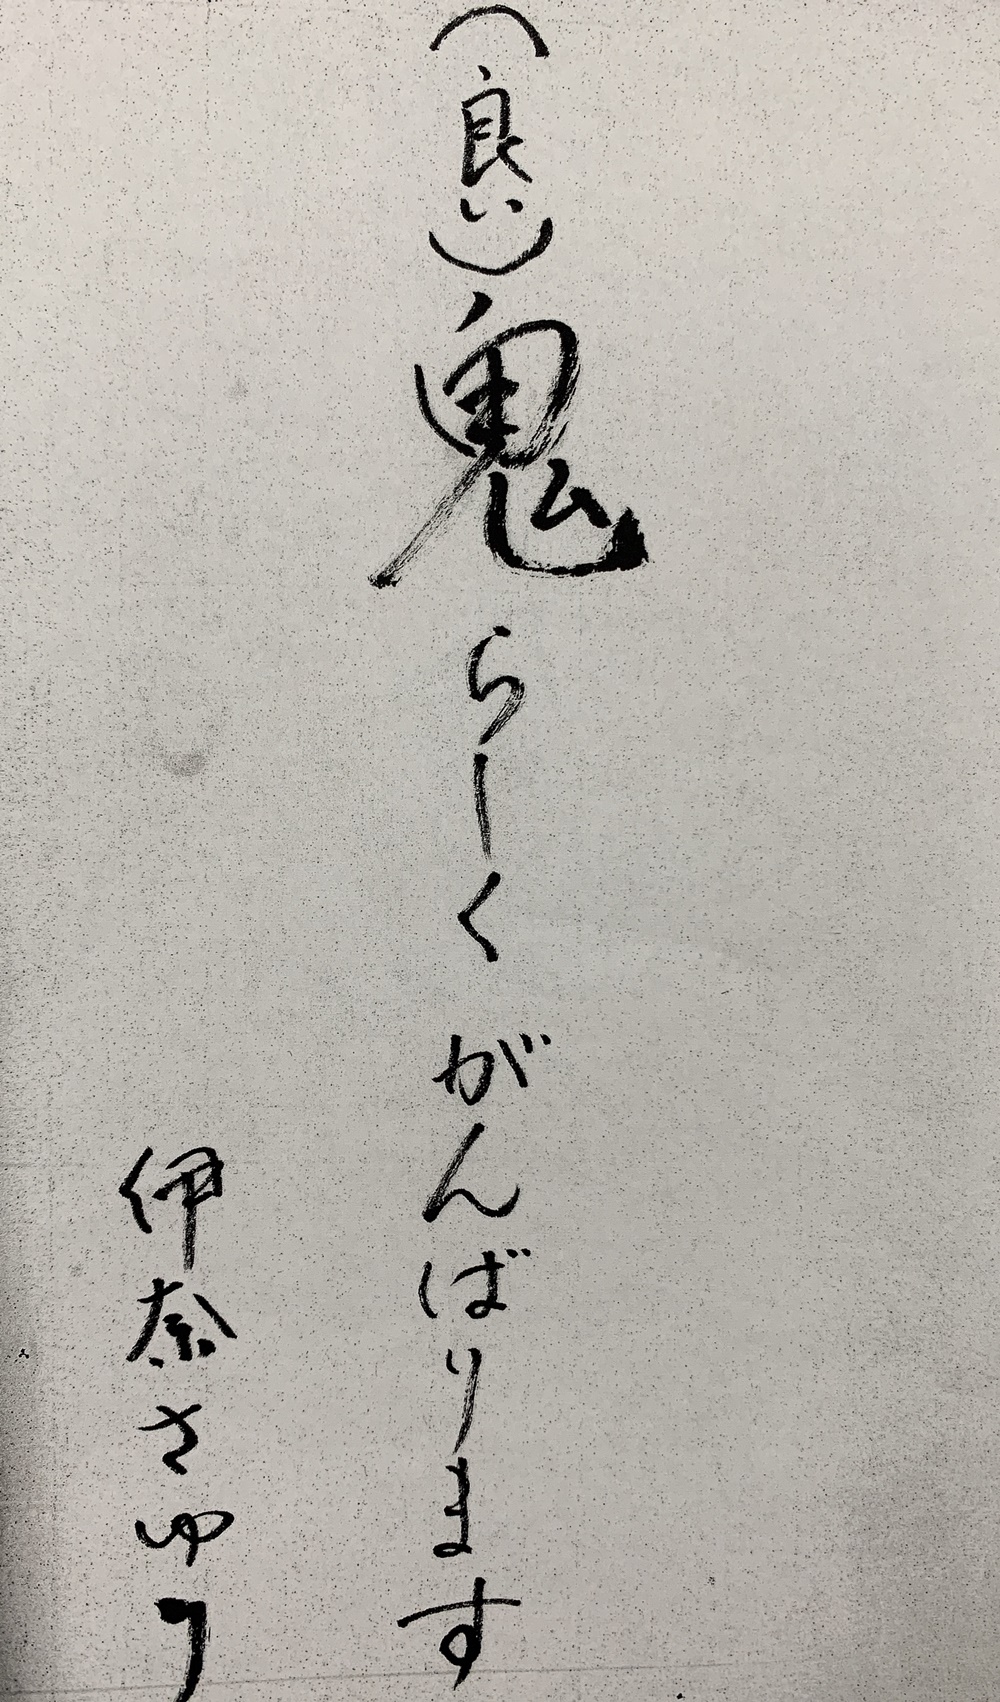 （良い）鬼らーくがんばります
伊奈さゆり